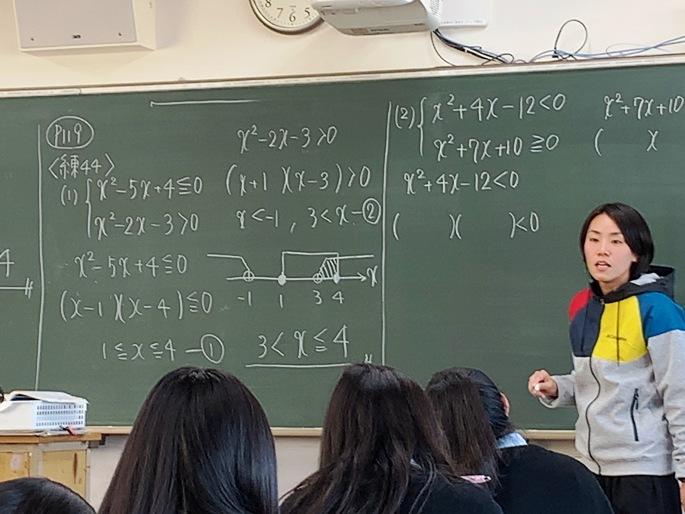 P119
〈練44〉
(1) { x²-5x+4≦0
x²-2x-3>0
x²-5x+4≦0
(x-1)(x-4)≦0
1≦x≦4 -①
x²-2x-3>0
(x+1)(x-3)>0
x<-1, 3<x-②
-1 1 3 4 x
3<x≦4
(2) { x²+4x-12<0
x²+7x+10≧0
x²+4x-12<0
( )( )<0
x²+7x+10
( )(
4
7 6 5